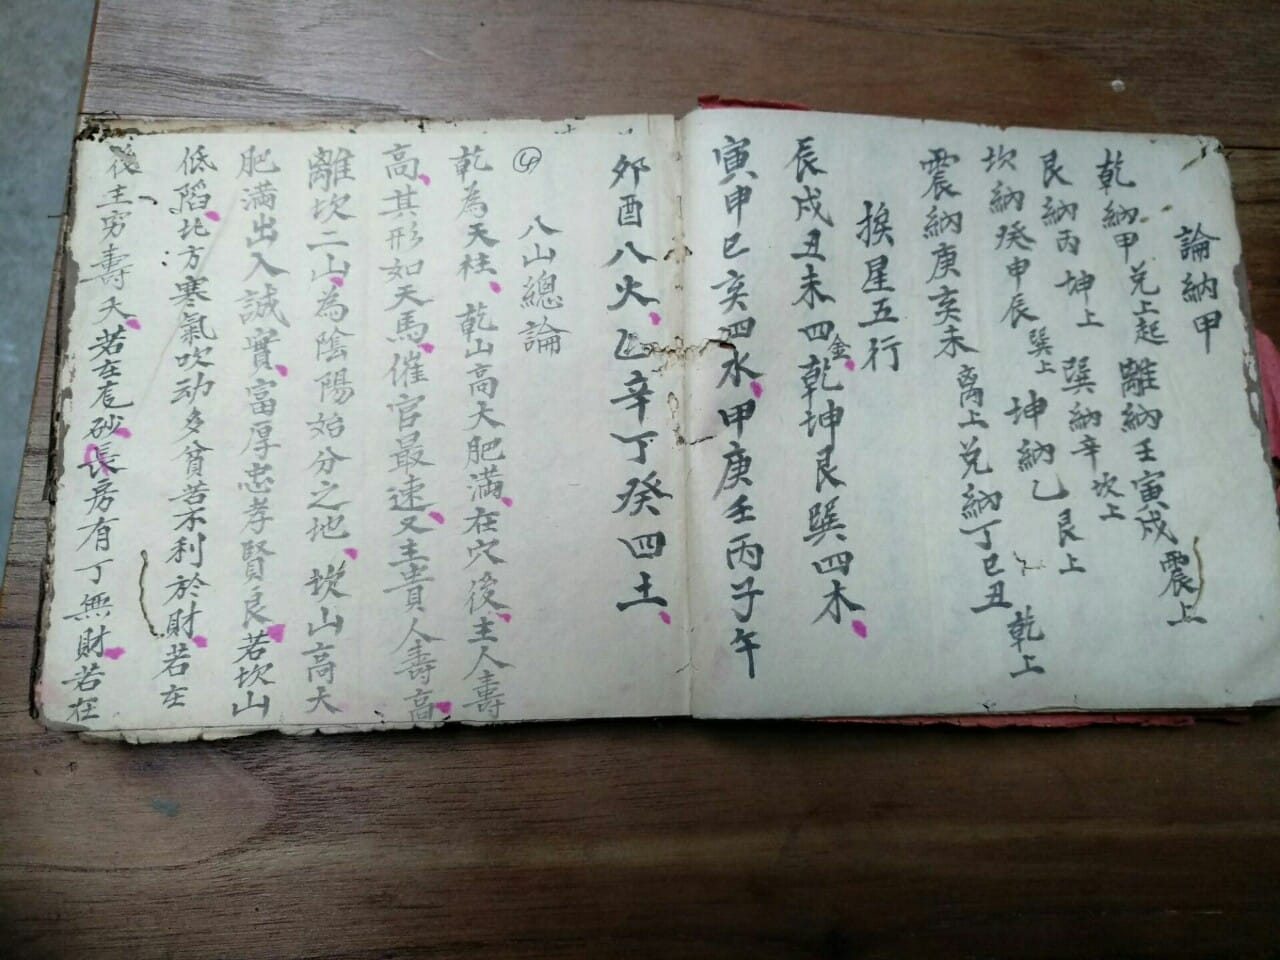 論納甲
乾納甲兑上起 離納壬寅戍震上
艮納丙坤上 巽納辛坎上
坎納癸申辰巽上 坤納乙艮上
震納庚亥未离上兑納丁巳丑 乾上
挨星五行
辰戍丑未四金乾坤艮巽四木
寅申巳亥四水甲庚壬丙子午
夘酉八火乙辛丁癸四土
④ 八山總論
乾為天柱乾山高大肥滿在穴後主人壽
高其形如天馬催官最速又主貴人壽高
離坎二山為陰陽始分之地坎山高大
肥滿出入誠實富厚忠孝賢良若坎山
低陷北方寒氣吹动多貧苦不利於財若在
後主穷壽夭若在砂長房有丁無財若在